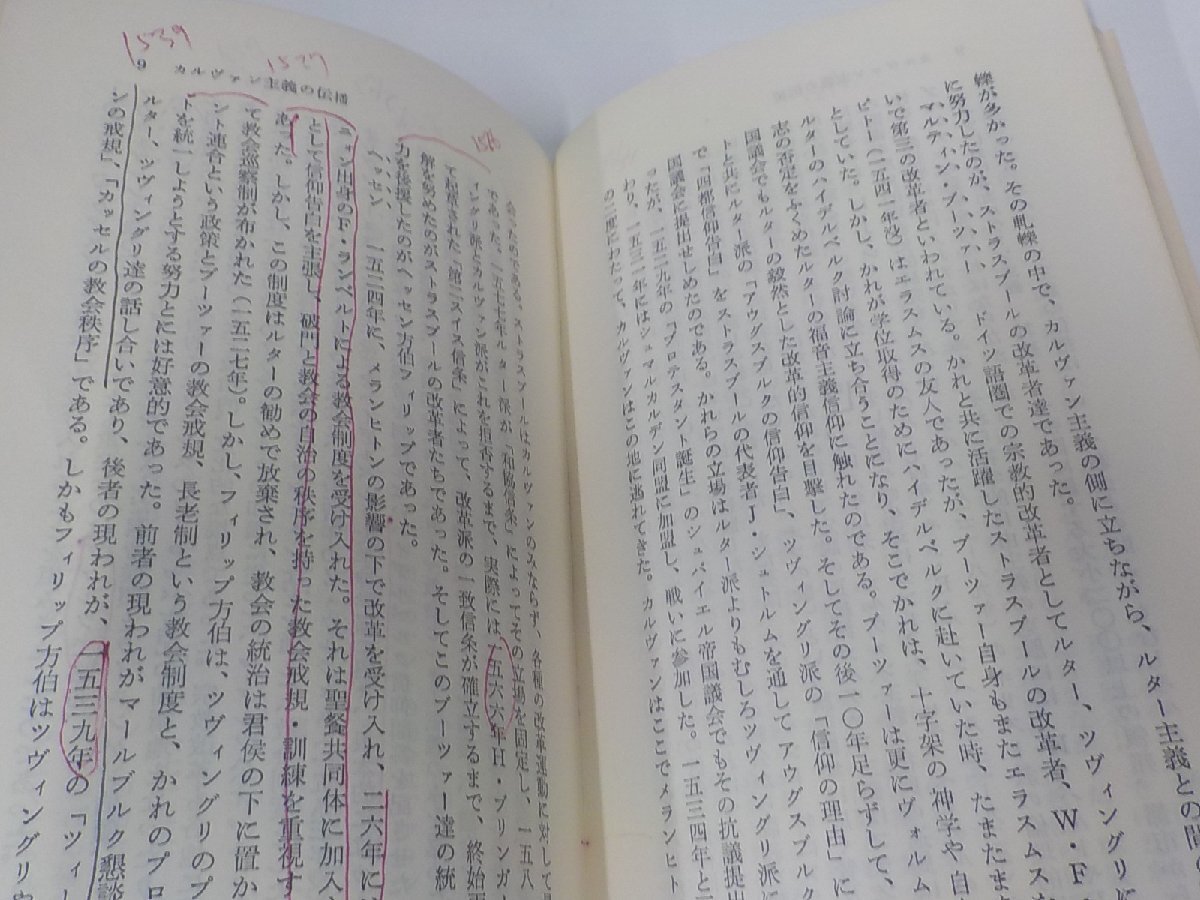 轢が多かった。その軋轢の中で、カルヴァン主義の側に立ちながら、ルター主義との間
に努力したのが、ストラスブールの改革者達であった。
マルティン・ブーツァーは、ドイツ語圏での宗教的改革者としてルター、ツヴィングリに
いで第三の改革者といわれている。かれと共に活躍したストラスブールの改革者、W・F
ピトー(一五四一年没)はエラスムスの友人であったが、ブーツァー自身もまたエラスムス
としていた。しかし、かれが学位取得のためにハイデルベルクに赴いていた時、たまたま
ルターのハイデルベルク討論に立ち合うことになり、そこでかれは、十字架の神学や自
志の否定をふくめたルターの福音主義信仰に触れたのである。ブーツァーは更にヴォルム
国議会でもルターの毅然とした改革的信仰を目撃した。そしてその後一〇年足らずして、
トと共にルター派の「アウグスブルクの信仰告白」、ツヴィングリ派の「信仰の理由」に
で「四都信仰告白」をストラスブールの代表者J・シュトルムを通してアウグスブルク
国議会に提出せしめたのである。かれらの立場はルター派よりもむしろツヴィングリ派に
ったが、一五二九年の「プロテスタント誕生」のシュパイエル帝国議会でもその抗議提出
わり、一五三一年にはシュマルカルデン同盟に加盟し、戦いに参加した。一五三四年と
の二度にわたって、カルヴァンはこの地に逃れてきた。カルヴァンはここでメランヒト
1539
1527
9 カルヴァン主義の伝播
会ったのである。ストラスブールはカルヴァンのみならず、各種の改革運動に対して
であった。一五七七年ルター派が「和協信条」によってその立場を固定し、一五八
ィングリ派とカルヴァン派がこれを拒否するまで、実際には一五六六年H・ブリンガ
て起草された「第二スイス信条」によって、改革派の一致信条が確立するまで、終始
解を努めたのがストラスブールの改革者たちであった。そしてこのブーツァー達の統
力を後援したのがヘッセン方伯フィリップであった。
ヘッセン 一五二四年に、メランヒトンの影響の下で改革を受け入れ、二六年に
ニョン出身のF・ランベルトによる教会制度を受け入れた。それは聖餐共同体に加入
として信仰告白を主張し、破門と教会の自治の秩序を持った教会戒規・訓練を重視す
あった。しかし、この制度はルターの勧めで放棄され、教会の統治は君侯の下に置か
て教会巡察制が布かれた(一五二七年)。しかし、フィリップ方伯は、ツヴィングリのプ
ント連合という政策とブーツァーの教会戒規、長老制という教会制度と、かれのプロ
トを統一しようとする努力とには好意的であった。前者の現われがマールブルク懇談
ルター、ツヴィングリ達の話し合いであり、後者の現われが、一五三九年の「ツィー
ンの戒規」、「カッセルの教会秩序」である。しかもフィリップ方伯はツヴィングリや